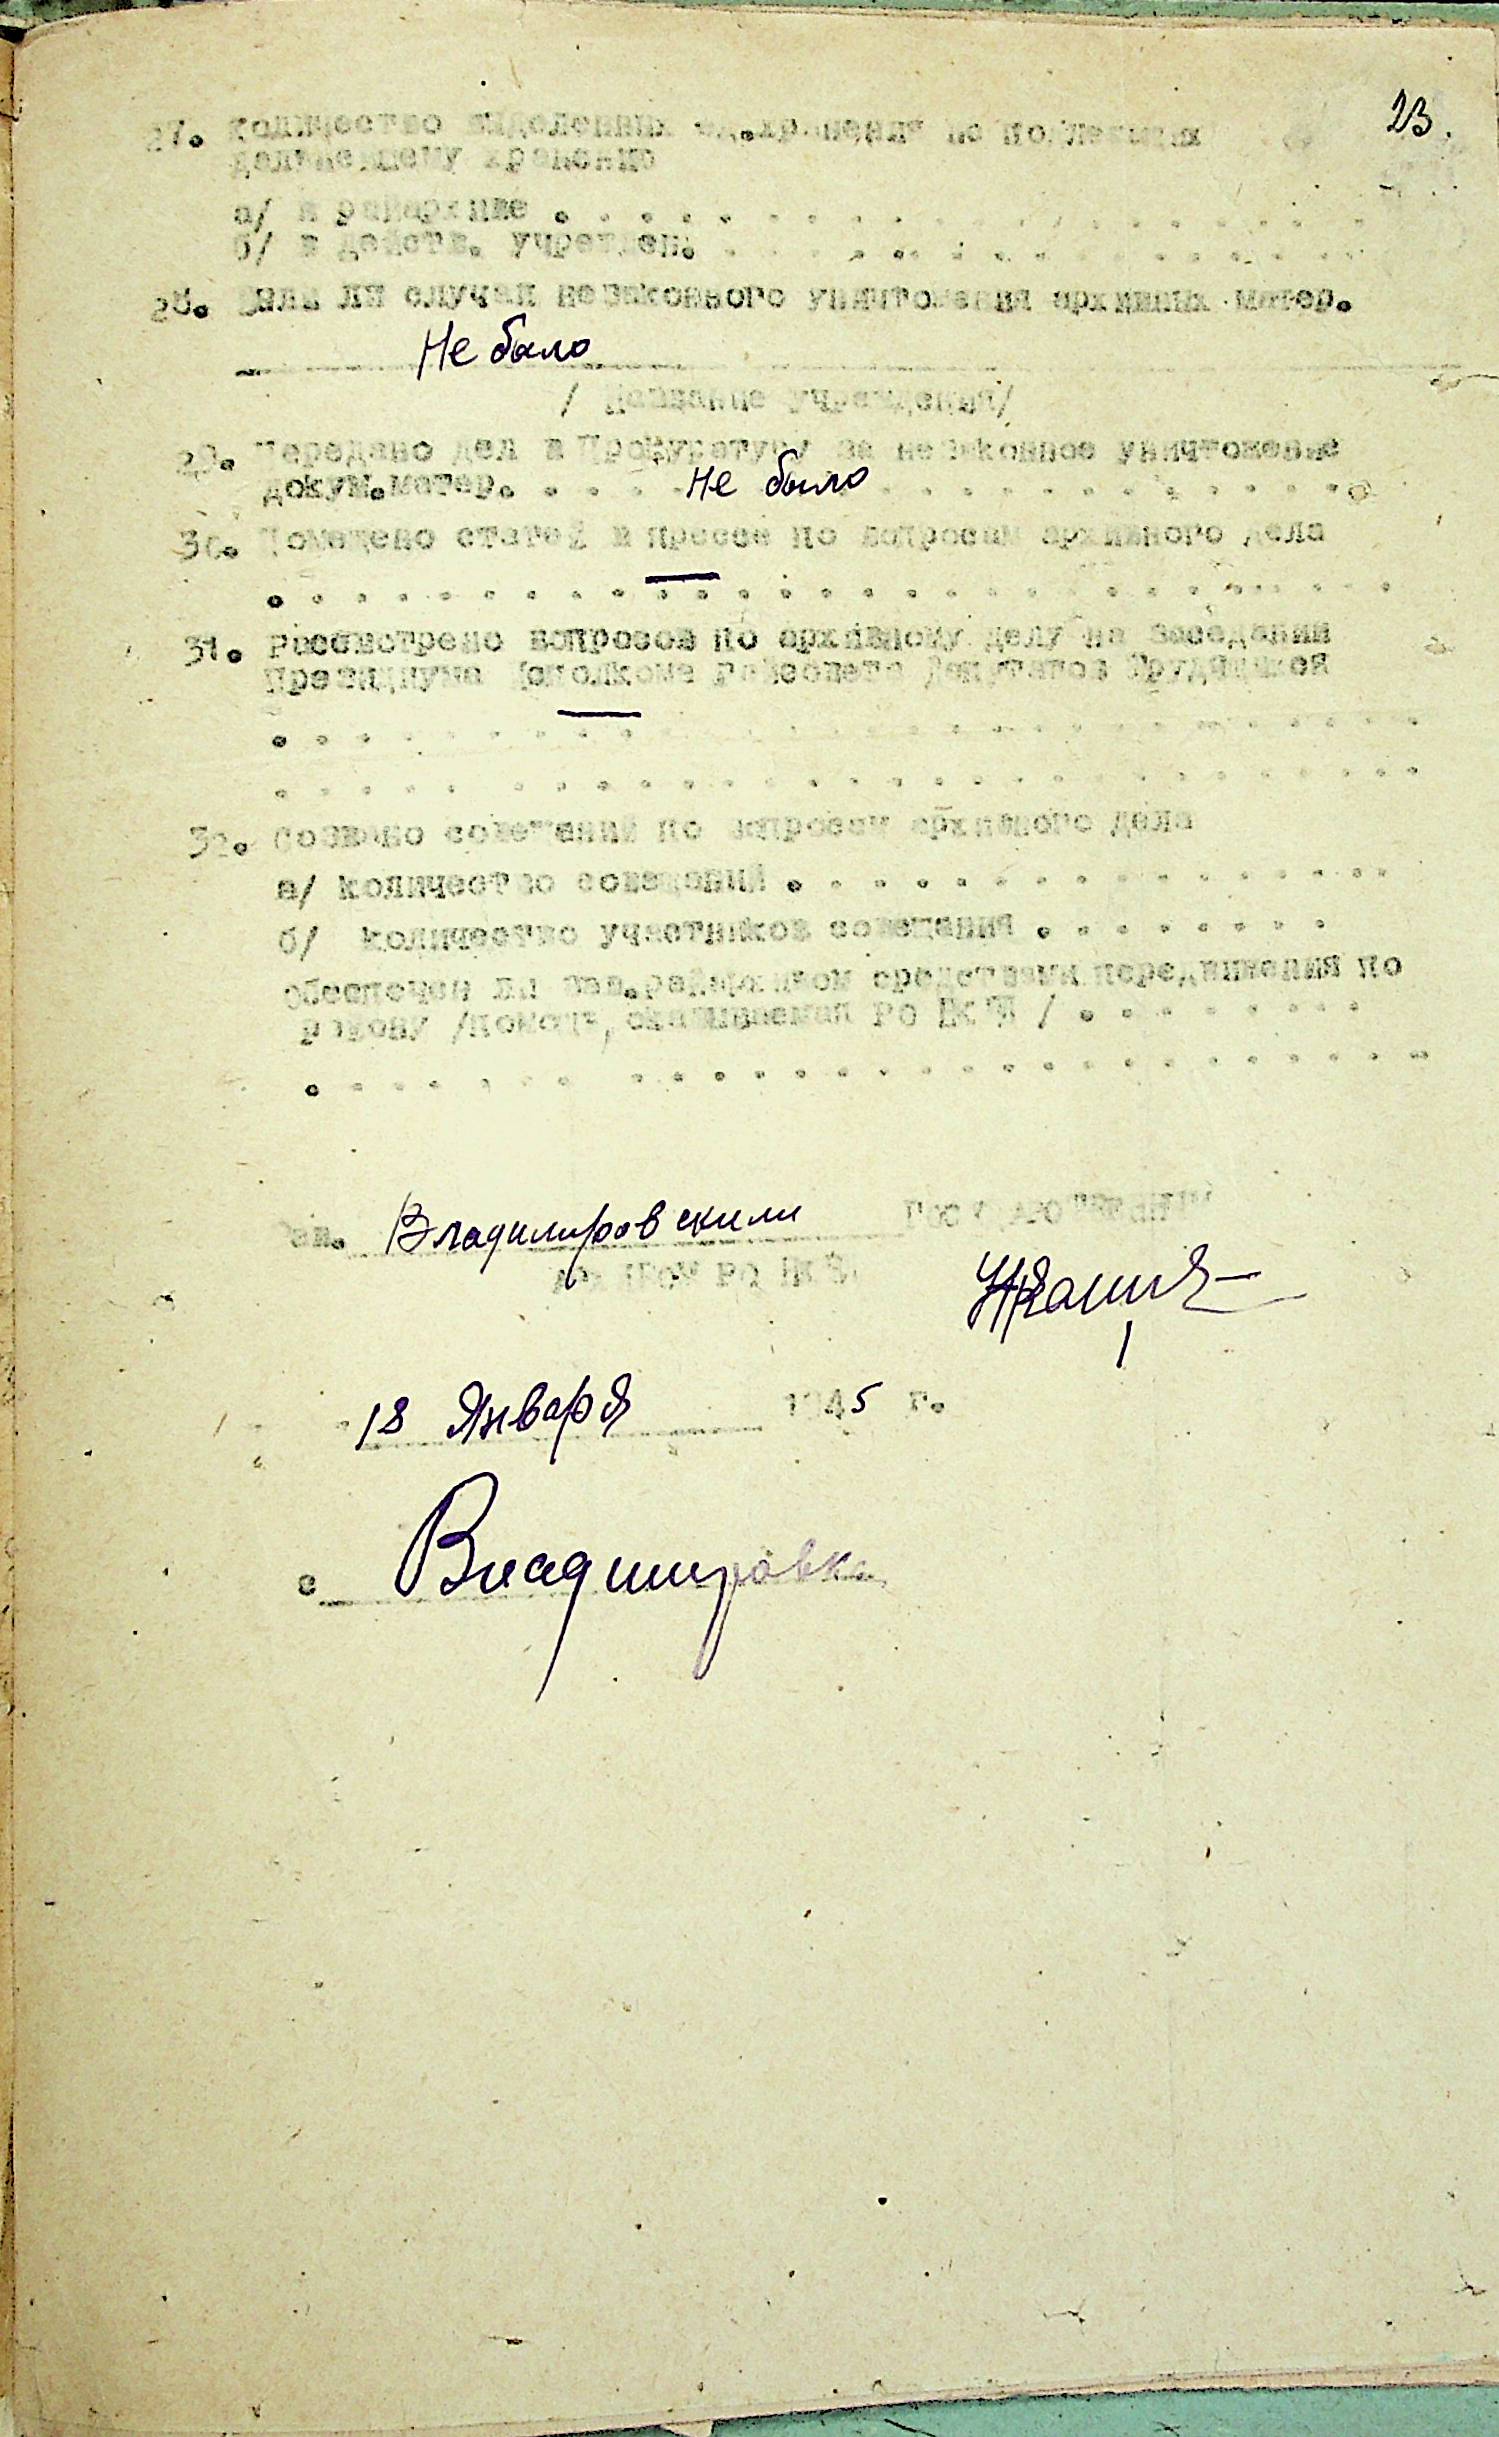 23.
27. Количество выделенных ед.хранения не подлежащих
дальнейшему хранению
а/ в райархиве . . . . . . . . . . . . . . . . . . . .
б/ в действ. учрежден. . . . . . . . . . . . . . . . .
28. Были ли случаи незаконного уничтожения архивных матер.
Не было
/ Название учреждения/
29. Передано дел в Прокуратуру за незаконное уничтожение
докум.матер. . . . . Не было . . . . . . . . . . . .
30. Помещено статей в прессе по вопросам архивного дела
—
. . . . . . . . . . . . . . . . . . . . . . . . . . .
31. Рассмотрено вопросов по архивному делу на заседании
Президиума Исполкома Райсовета Депутатов Трудящихся
—
. . . . . . . . . . . . . . . . . . . . . . . . . . .
. . . . . . . . . . . . . . . . . . . . . . . . . . .
32. Созвано совещаний по вопросам архивного дела
а/ количество совещаний . . . . . . . . . . . . . . .
б/ количество участников совещания . . . . . . . .
обеспечен ли зав.райархивом средствами передвижения по
району /помощь, оказываемая РО НКВД / . . . . . . . .
. . . . . . . . . . . . . . . . . . . . . . . . . . .
Зав. Владимировским
АРХИВОМ РО НКВД
18 Января 1945 г.
с Владимировка